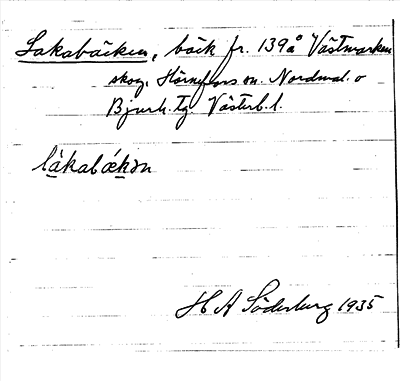 Lakabäcken, bäck fr. 139å Västmarken
skog, Hörnefors sn. Nordmal. o
Bjurh. tg. Västerb. l.
lákabǽkən
H A Söderberg 1935